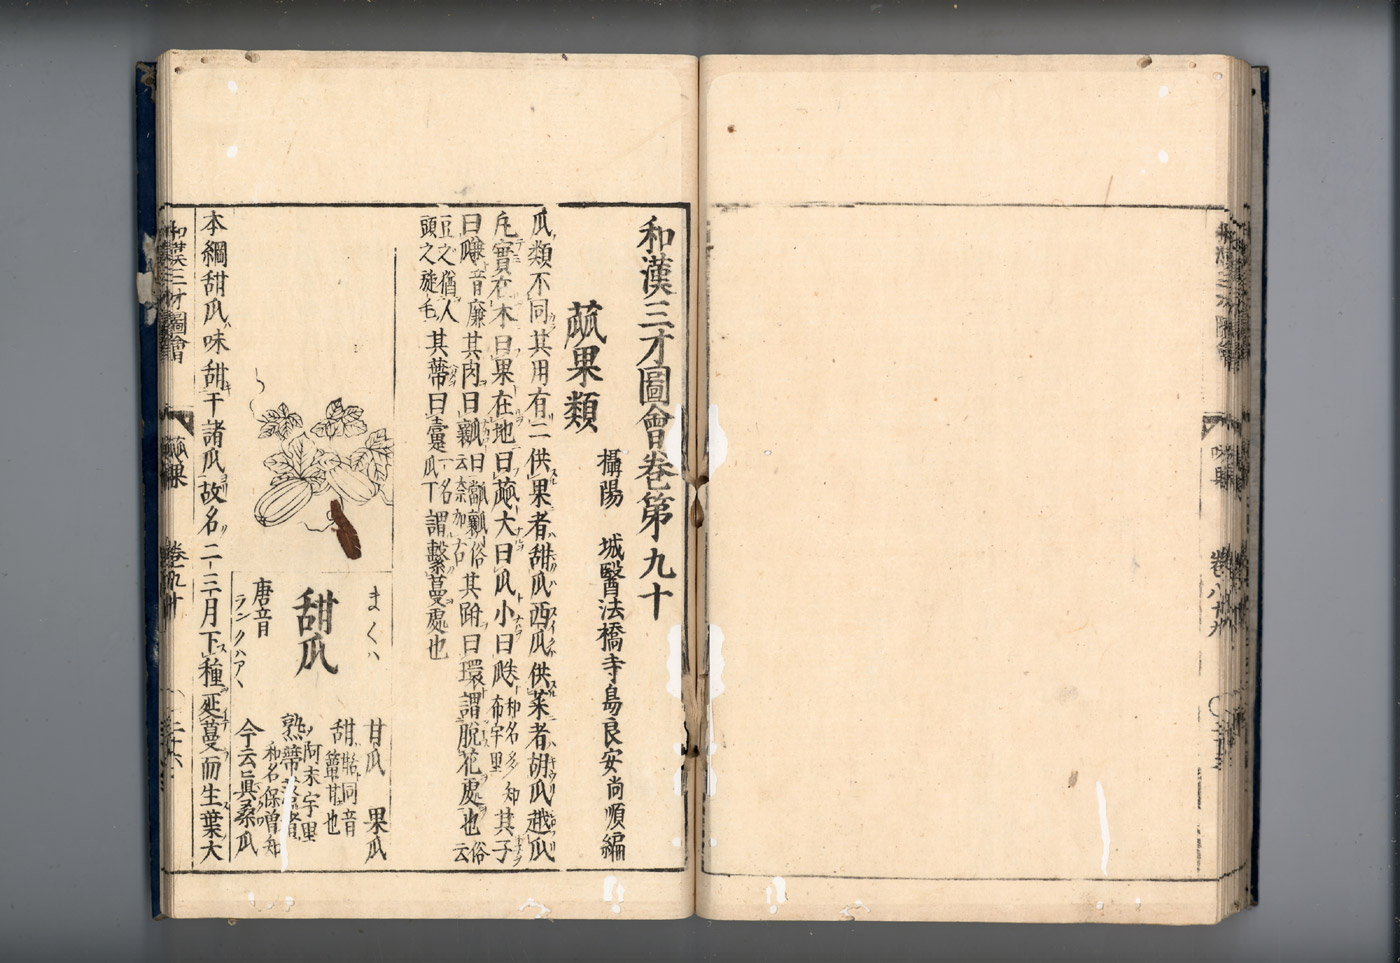 和漢三才圖會卷第九十
攝陽 城醫法橋寺島良安尚順編
蓏果類
瓜類不同其用有二供果者甜瓜西瓜供菜者胡瓜越瓜
凡實在木曰果在地曰蓏大曰瓜小曰瓞 和名多知布宇里 其子
曰㼓 音廉 其肉曰瓤 其跗曰環謂脫花處也 俗云
豆之猶人
頭之旋毛 其蔕曰疐 瓜丁 一名 謂繫蔓處也
まくハ
甜瓜
唐音
甘瓜 果瓜
甜 同音
甘也
阿末宇里
熟
和名保曽知
今云真桑瓜
本綱甜瓜味甜于諸瓜故名二三月下種延蔓而生葉大
和漢三才圖會 蓏果 卷九十